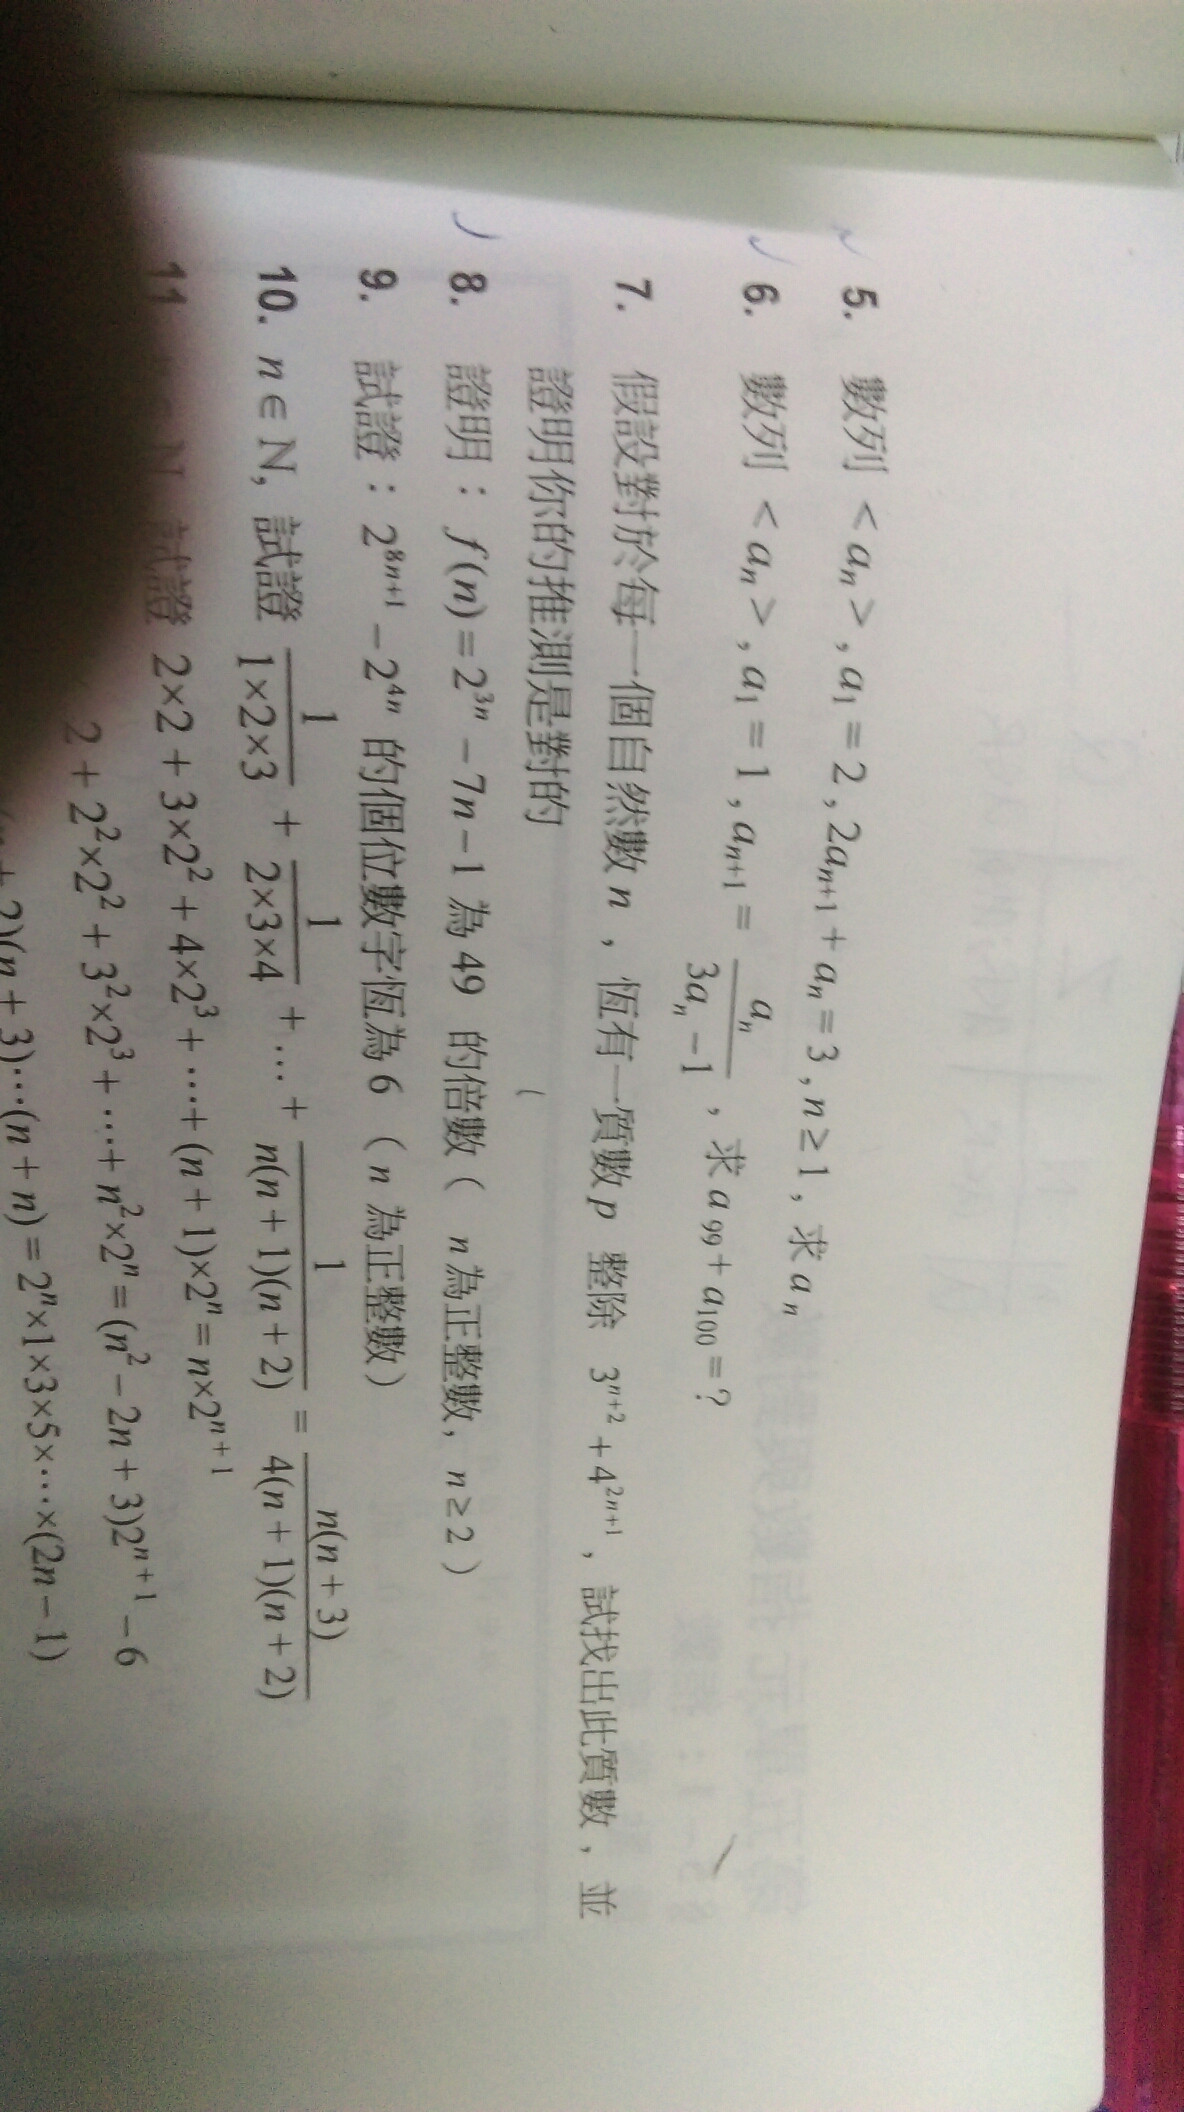 5. 數列 < aₙ >，a₁ = 2 , 2aₙ₊₁ + aₙ = 3 , n ≥ 1，求 aₙ
6. 數列 < aₙ >，a₁ = 1 , aₙ₊₁ = aₙ / (3aₙ − 1)，求 a₉₉ + a₁₀₀ = ?
7. 假設對於每一個自然數 n，恆有一質數 p 整除 3ⁿ⁺² + 4²ⁿ⁺¹，試找出此質數，並
證明你的推測是對的
8. 證明：f(n) = 2³ⁿ − 7n − 1 為 49 的倍數（ n 為正整數, n ≥ 2 ）
9. 試證：2⁸ⁿ⁺¹ − 2⁴ⁿ 的個位數字恆為 6 （ n 為正整數）
10. n ∈ N, 試證 1/(1×2×3) + 1/(2×3×4) + … + 1/(n(n + 1)(n + 2)) = n(n + 3)/(4(n + 1)(n + 2))
11 ∈ N 試證 2×2 + 3×2² + 4×2³ + ⋯ + (n + 1)×2ⁿ = n×2ⁿ⁺¹
2 + 2²×2² + 3²×2³ + ⋯ + n²×2ⁿ = (n² − 2n + 3)2ⁿ⁺¹ − 6
+ 2)(n + 3)⋯(n + n) = 2ⁿ×1×3×5×⋯×(2n − 1)